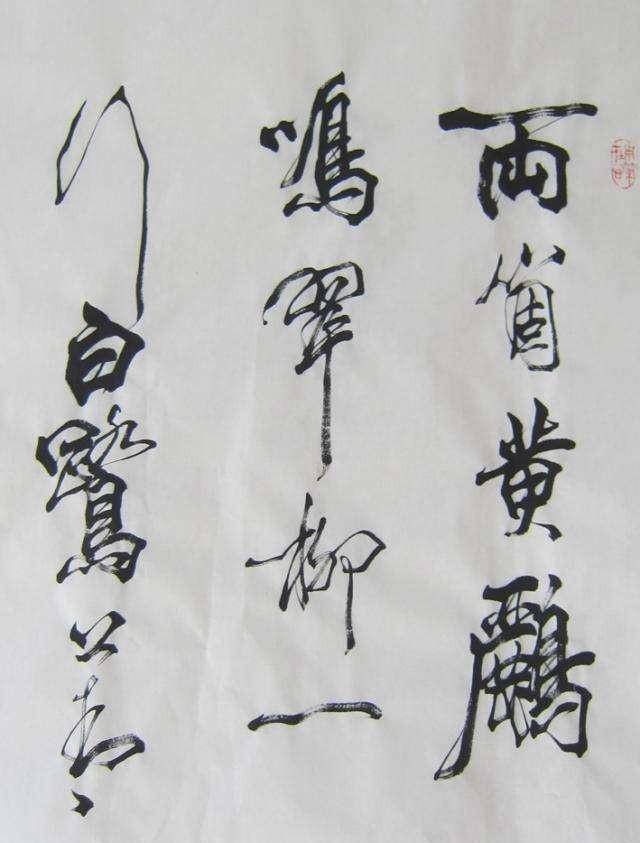 兩箇黄鸝
鳴翠柳一
行白鷺上青